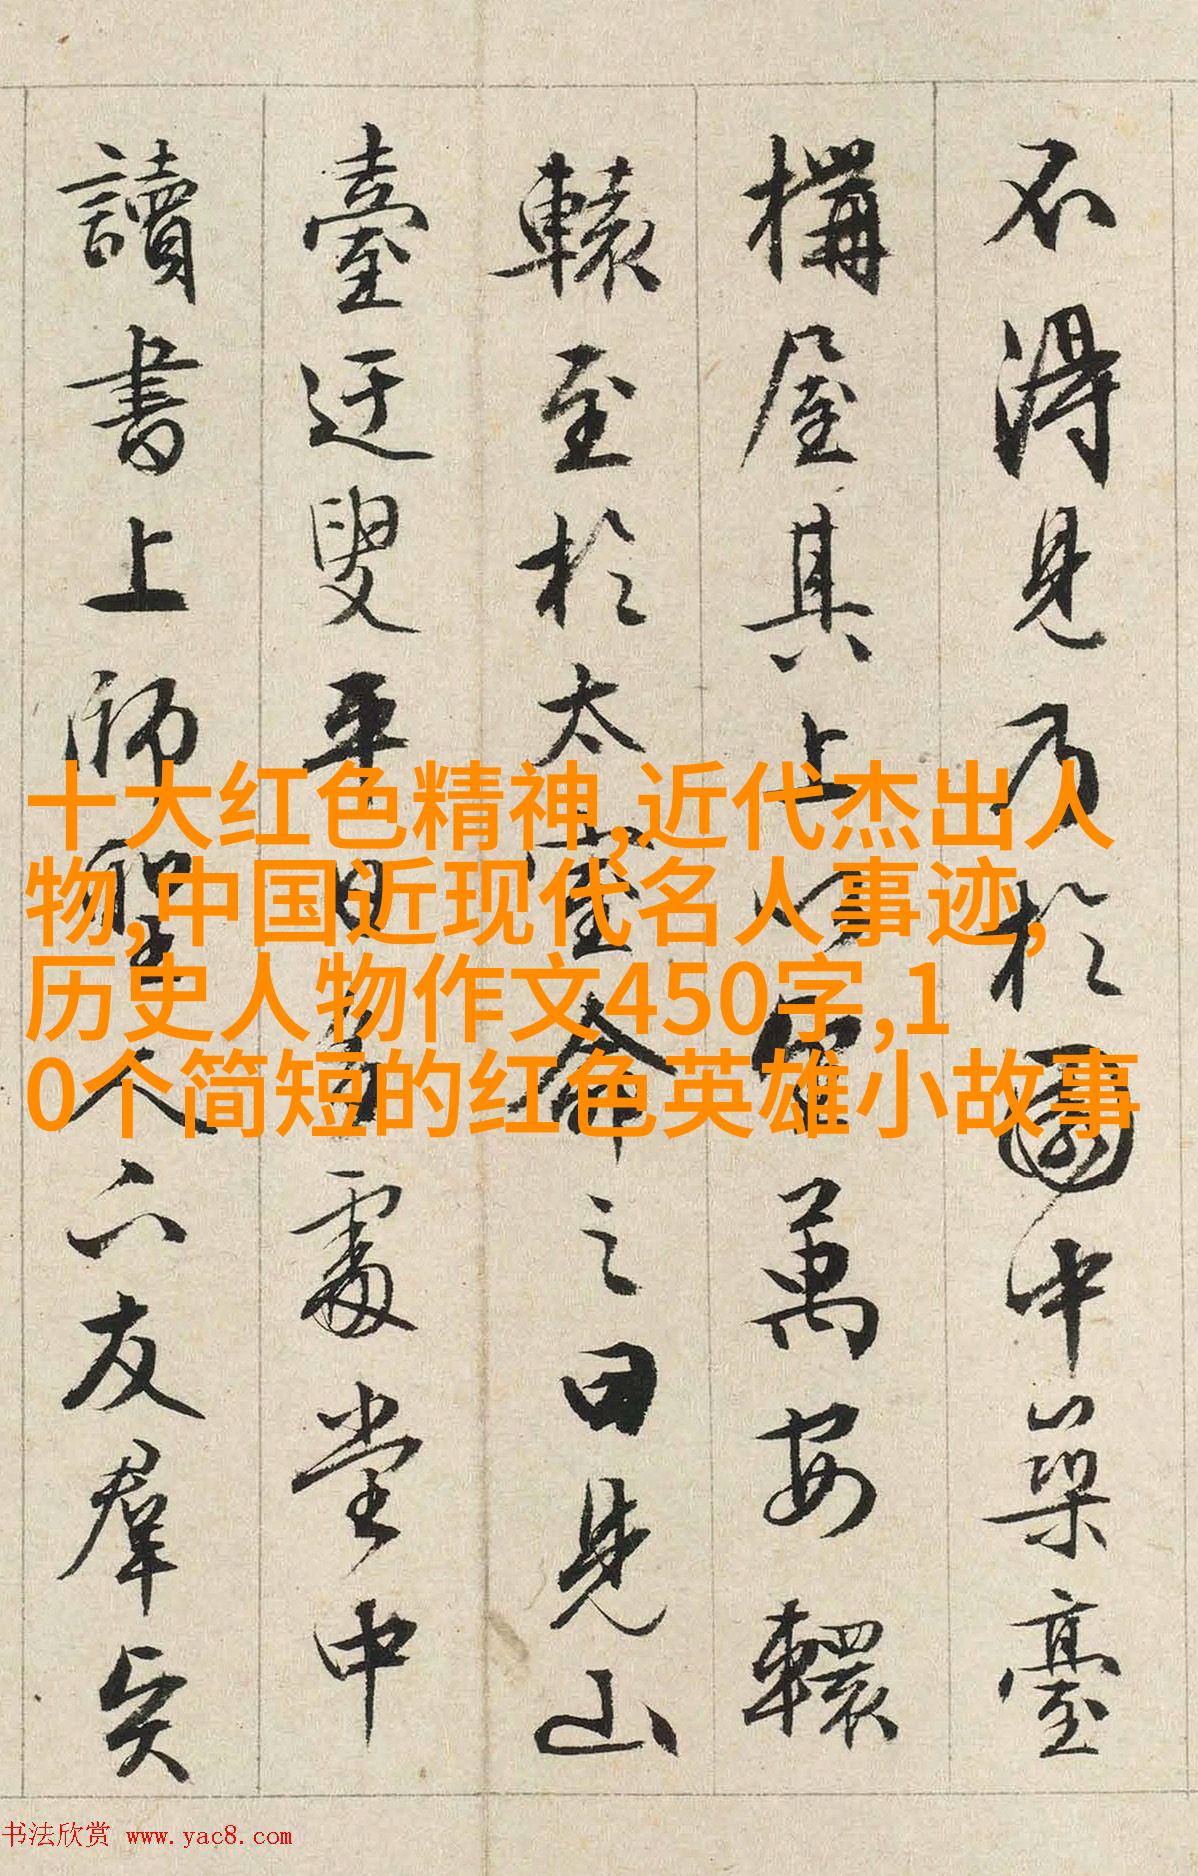 不得見乃於園中築臺
構屋其上以望萬安轘
轅至於太室命之曰見山
臺迂叟平日多處堂中
讀書上師聖人下友羣賢
十大红色精神,近代杰出人
物,中国近现代名人事迹,
历史人物作文450字,1
0个简短的红色英雄小故事
书法欣赏 www.yac8.com